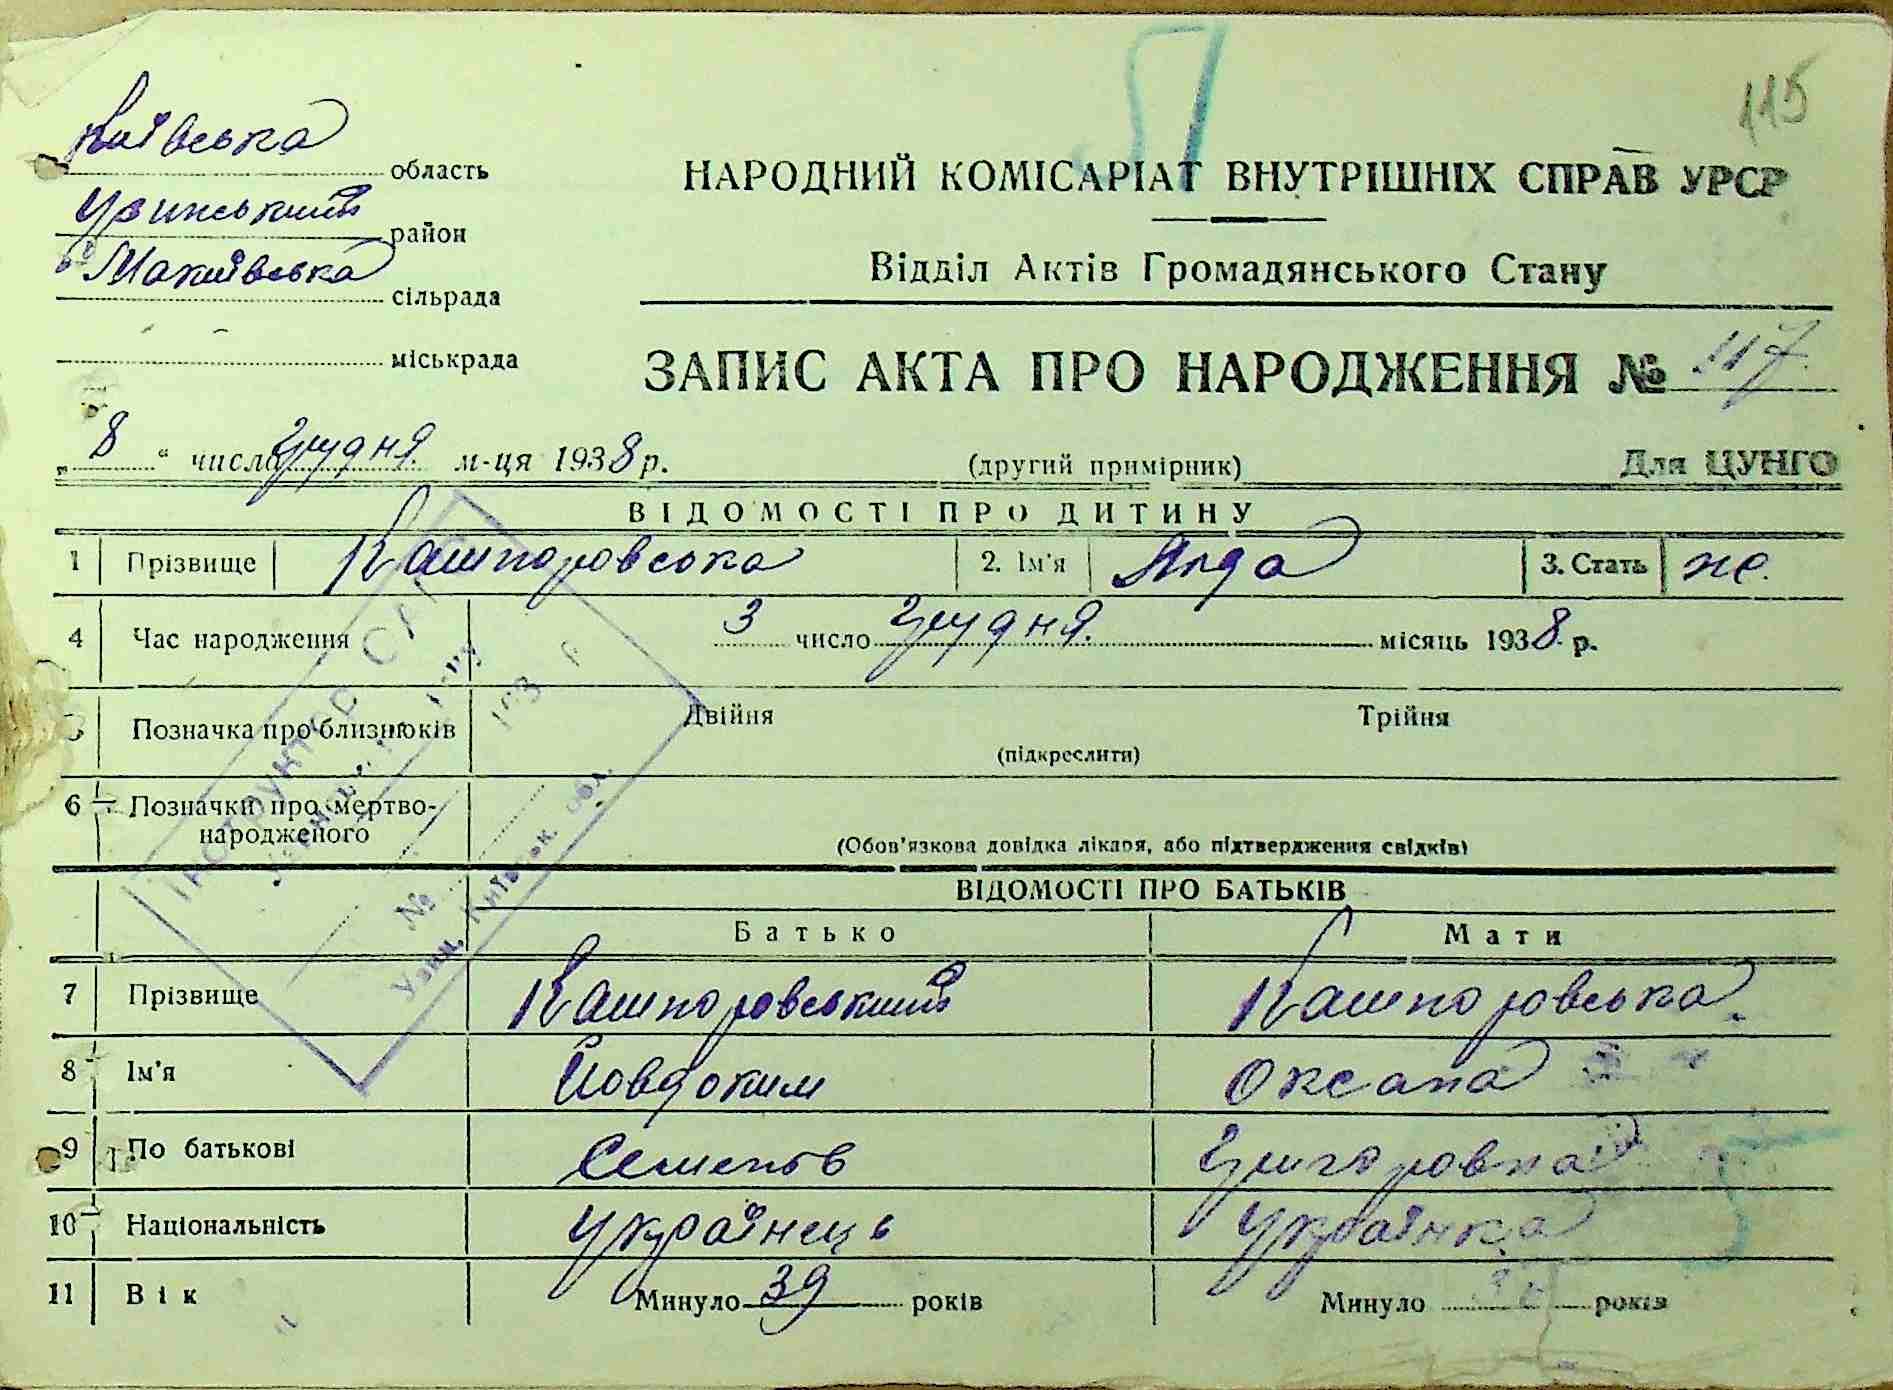 115
Київська область
район
Макиївська сільрада
міськрада
НАРОДНИЙ КОМІСАРІАТ ВНУТРІШНІХ СПРАВ УРСР
Відділ Актів Громадянського Стану
ЗАПИС АКТА ПРО НАРОДЖЕННЯ № 117
„8“ числа грудня м-ця 1938 р.
(другий примірник)
Для ЦУНГО
ВІДОМОСТІ ПРО ДИТИНУ
1 Прізвище Кашпоровська 2. Ім'я 3. Стать же.
4 Час народження 3 число грудня місяць 1938 р.
Позначка про близнюків Двійня Трійня
(підкреслити)
6 Позначки про мертво-
народженого
(Обов'язкова довідка лікаря, або підтвердження свідків)
ВІДОМОСТІ ПРО БАТЬКІВ
Батько Мати
7 Прізвище Кашпоровський Кашпоровська
8 Ім'я Йовдоким Оксана
9 По батькові Семенов Григоровна
10 Національність Українець Українка
11 Вік Минуло 39 років Минуло років
Інструктор САГС
№
193 р
Київськ. обл.